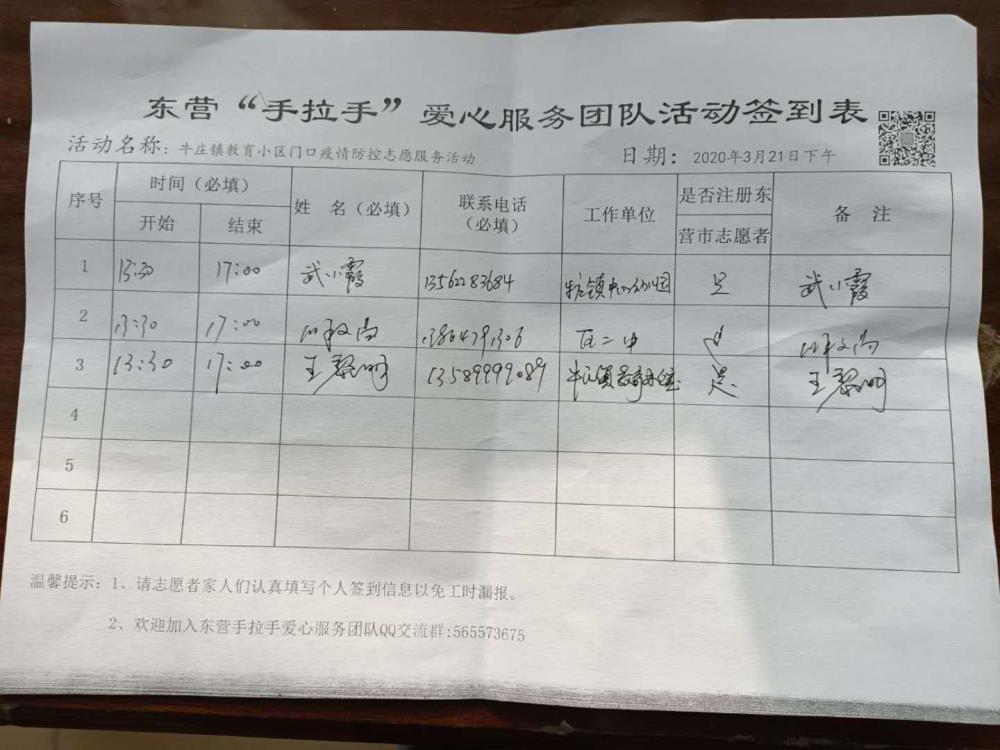 东营“手拉手”爱心服务团队活动签到表
活动名称：牛庄镇教育小区门口疫情防控志愿服务活动 日期：2020年3月21日下午
序号 时间（必填） 姓 名（必填） 联系电话（必填） 工作单位 是否注册东营市志愿者 备 注
开始 结束
1 13:30 17:00 武小霞 13562283684 牛庄镇中心幼儿园 是 武小霞
2 13:30 17:00 二中
3 13:30 17:00 王黎明 13589999089 牛庄镇教育办 是 王黎明
4
5
6
温馨提示：1、请志愿者家人们认真填写个人签到信息以免工时漏报。
2、欢迎加入东营手拉手爱心服务团队QQ交流群:565573675